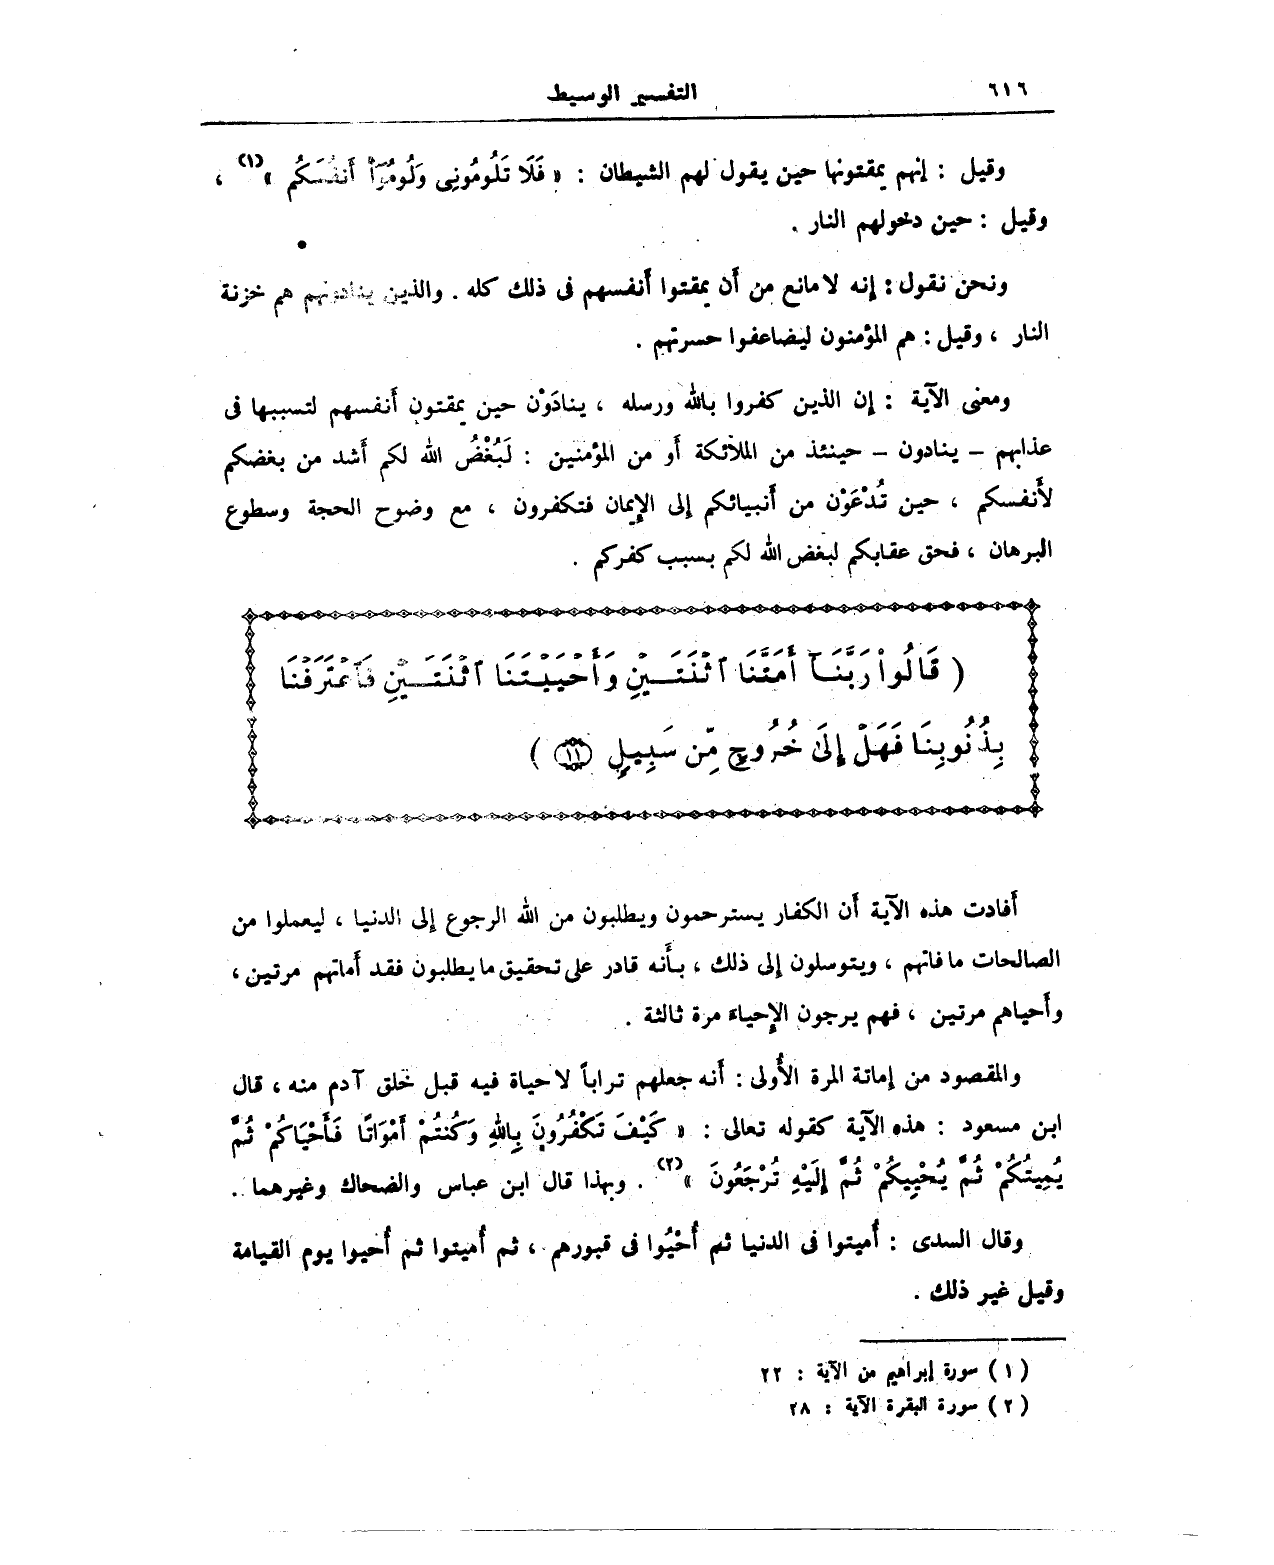 ٦١٦
التفسير الوسيط
وقيل : إنهم يمقتونها حين يقول لهم الشيطان : « فَلَا تَلُومُونِى وَلُومُوٓاْ أَنفُسَكُم »(١) ،
وقيل : حين دخولهم النار .
ونحن نقول : إنه لا مانع من أن يمقتوا أنفسهم فى ذلك كله . والذين ينادونهم هم خزنة
النار ، وقيل : هم المؤمنون ليضاعفوا حسرتهم .
ومعنى الآية : إن الذين كفروا بالله ورسله ، ينادَوْن حين يمقتون أنفسهم لتسببها فى
عذابهم – ينادون – حينئذ من الملائكة أو من المؤمنين : لَبُغْضُ الله لكم أشد من بغضكم
لأنفسكم ، حين تُدْعَوْن من أنبيائكم إلى الإيمان فتكفرون ، مع وضوح الحجة وسطوع
البرهان ، فحق عقابكم لبغض الله لكم بسبب كفركم .
( قَالُواْ رَبَّنَآ أَمَتَّنَا ٱثْنَتَيْنِ وَأَحْيَيْتَنَا ٱثْنَتَيْنِ فَٱعْتَرَفْنَا
بِذُنُوبِنَا فَهَلْ إِلَىٰ خُرُوجٍ مِّن سَبِيلٍ (١١) )
أفادت هذه الآية أن الكفار يسترحمون ويطلبون من الله الرجوع إلى الدنيا ، ليعملوا من
الصالحات ما فاتهم ، ويتوسلون إلى ذلك ، بأنه قادر على تحقيق ما يطلبون فقد أماتهم مرتين ،
وأحياهم مرتين ، فهم يرجون الإحياء مرة ثالثة .
والمقصود من إماتة المرة الأُولى : أنه جعلهم تراباً لا حياة فيه قبل خلق آدم منه ، قال
ابن مسعود : هذه الآية كقوله تعالى : « كَيْفَ تَكْفُرُونَ بِاللهِ وَكُنتُمْ أَمْوَاتًا فَأَحْيَاكُمْ ثُمَّ
يُمِيتُكُمْ ثُمَّ يُحْيِيكُمْ ثُمَّ إِلَيْهِ تُرْجَعُونَ »(٢) . وبهذا قال ابن عباس والضحاك وغيرهما .
وقال السدى : أُميتوا فى الدنيا ثم أُحْيُوا فى قبورهم ، ثم أُميتوا ثم أُحيوا يوم القيامة
وقيل غير ذلك .
( ١ ) سورة إبراهيم من الآية : ٢٢
( ٢ ) سورة البقرة الآية : ٢٨